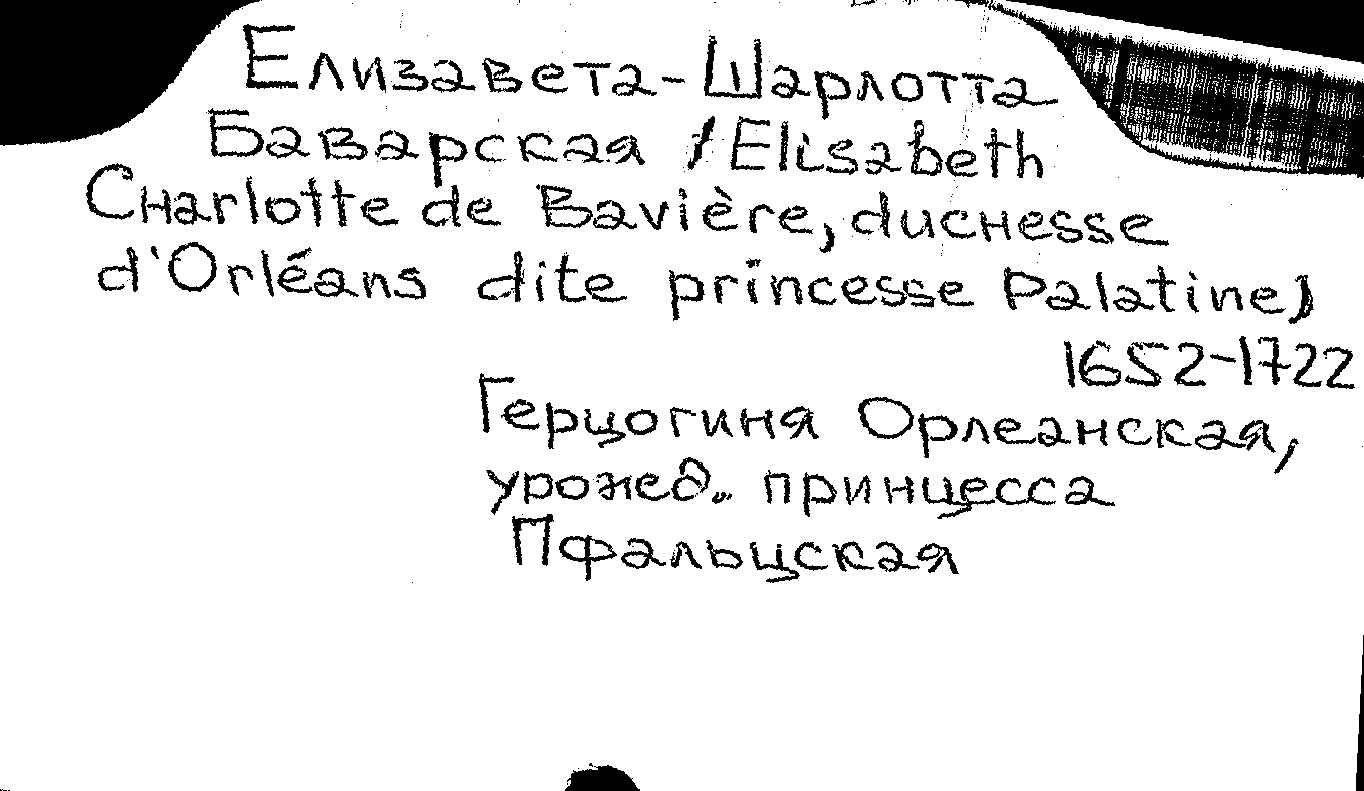 Елизавета-Шарлотта
Баварская /Elisabeth
Charlotte de Bavière, duchesse
d'Orléans dite princesse Palatine)
1652-1722
Герцогиня Орлеанская,
урожед. принцесса
Пфальцская